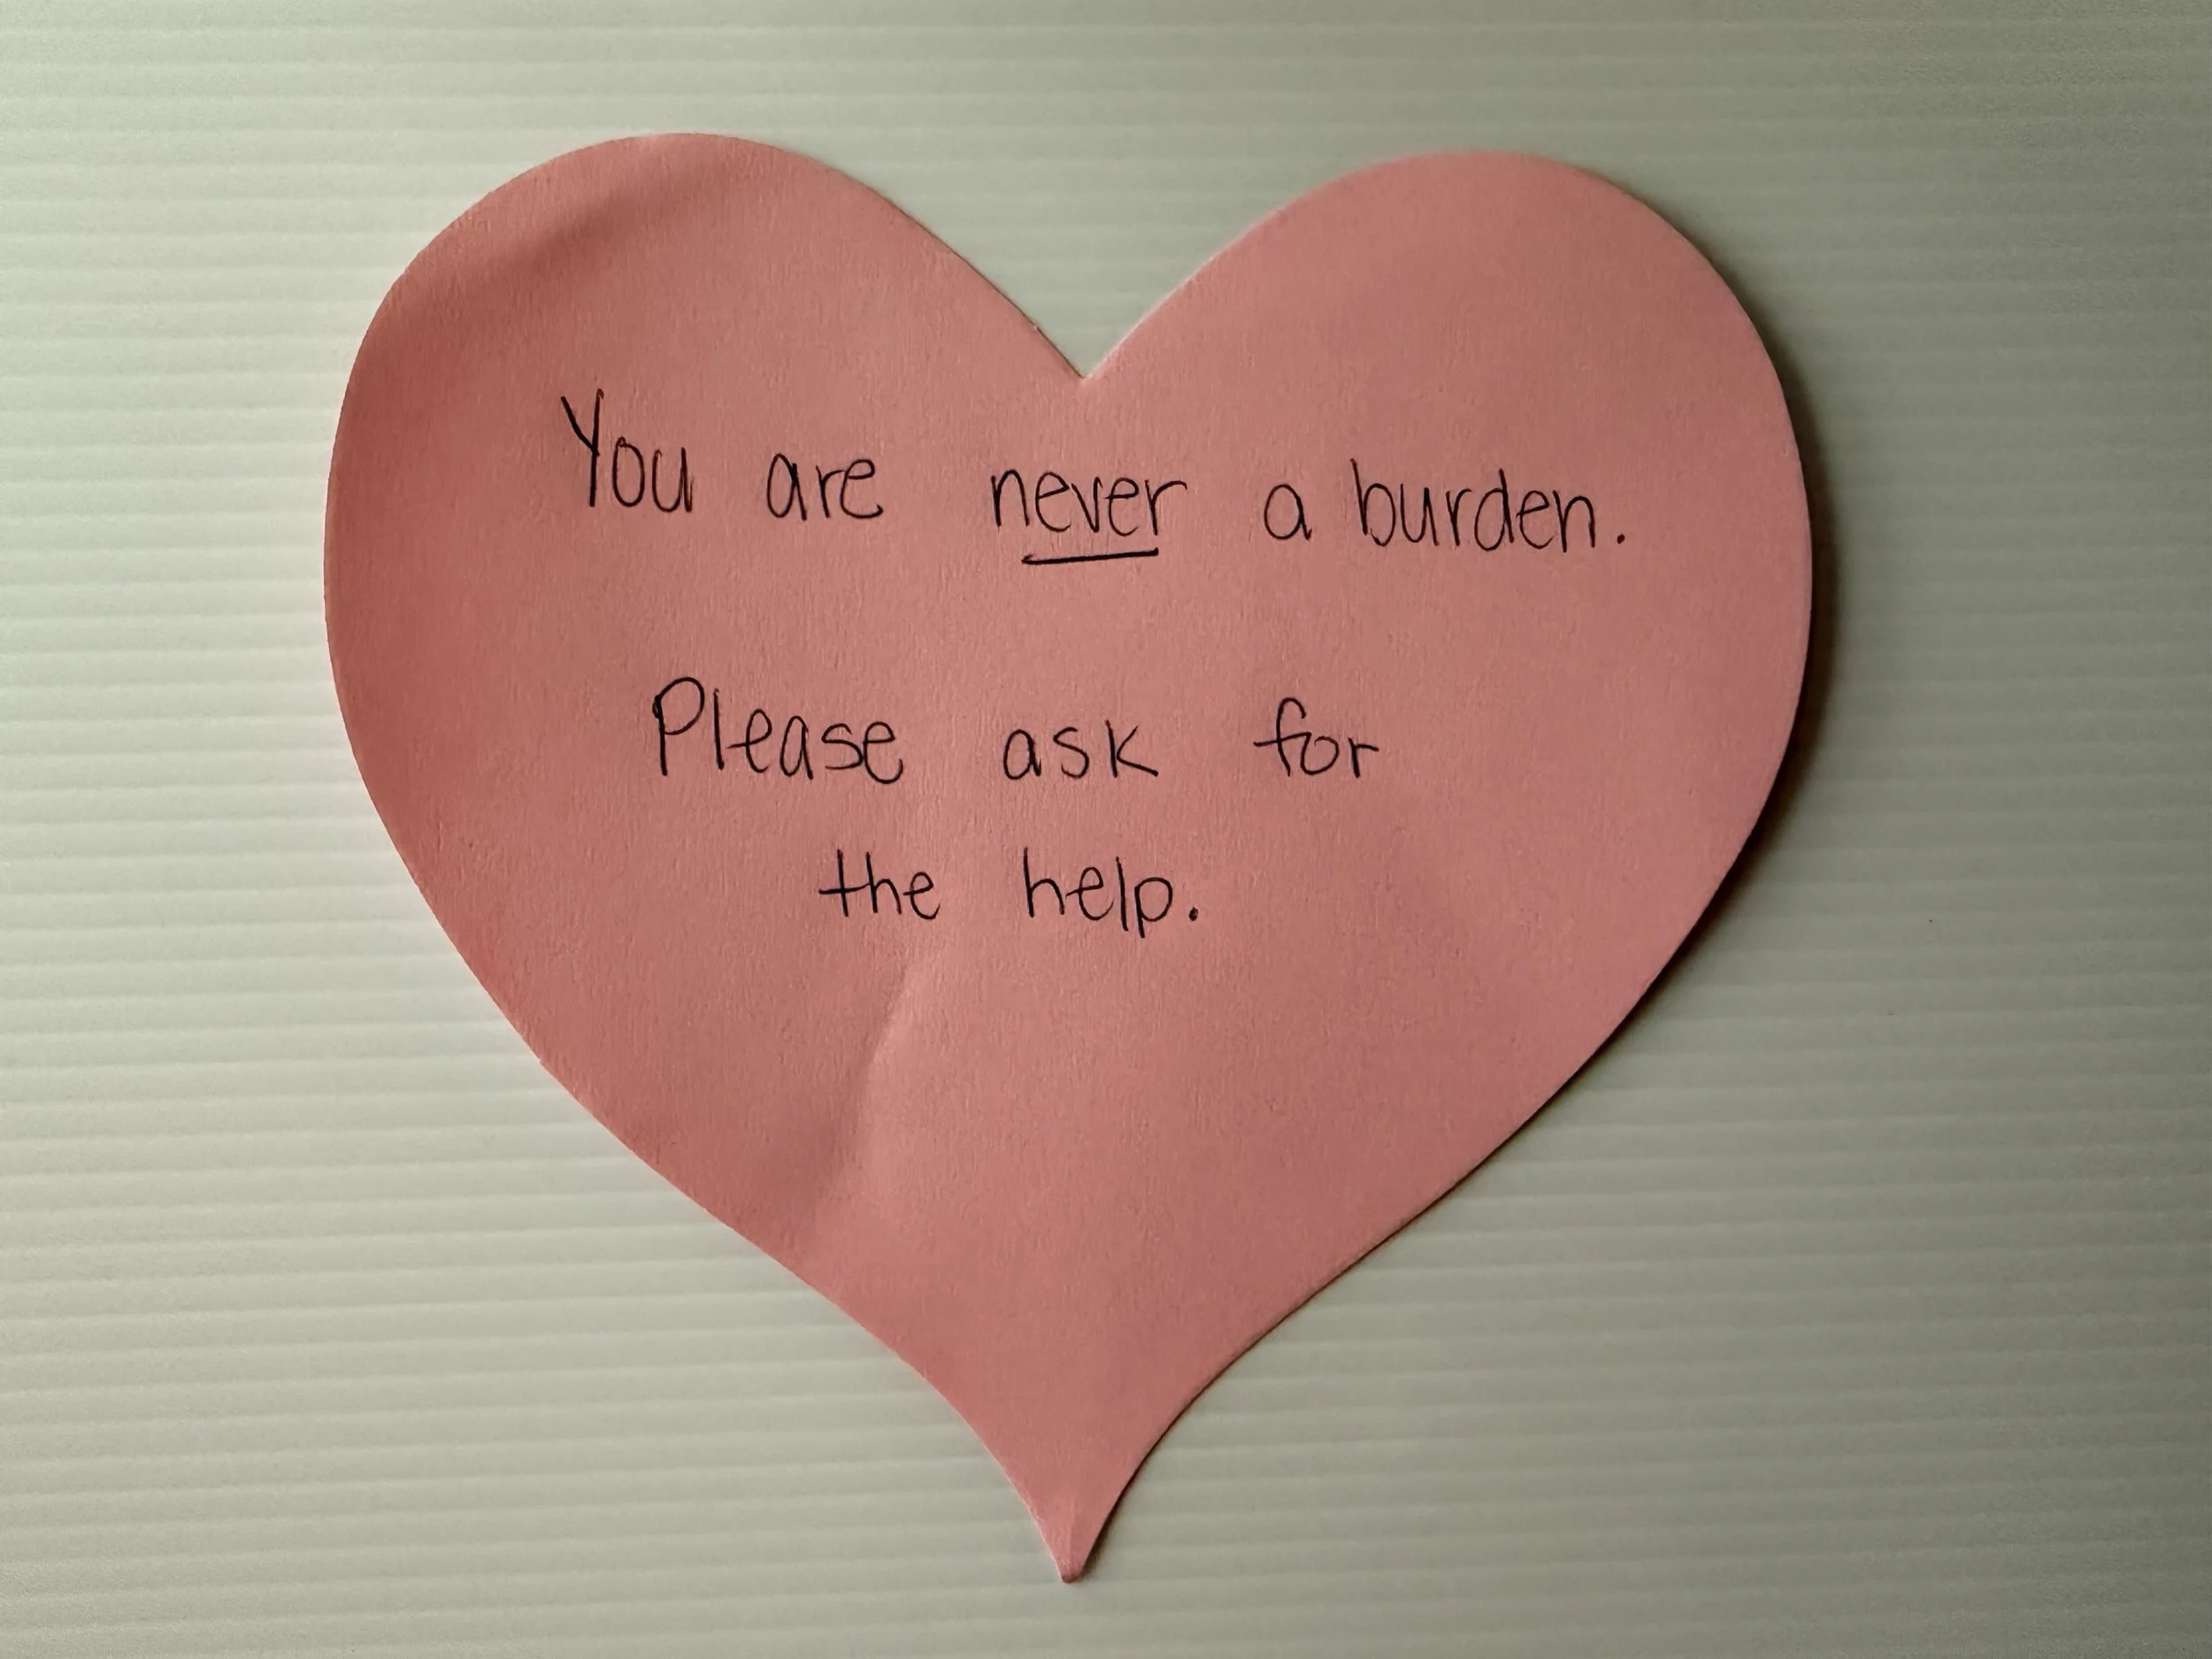 You are never a burden.
Please ask for
the help.